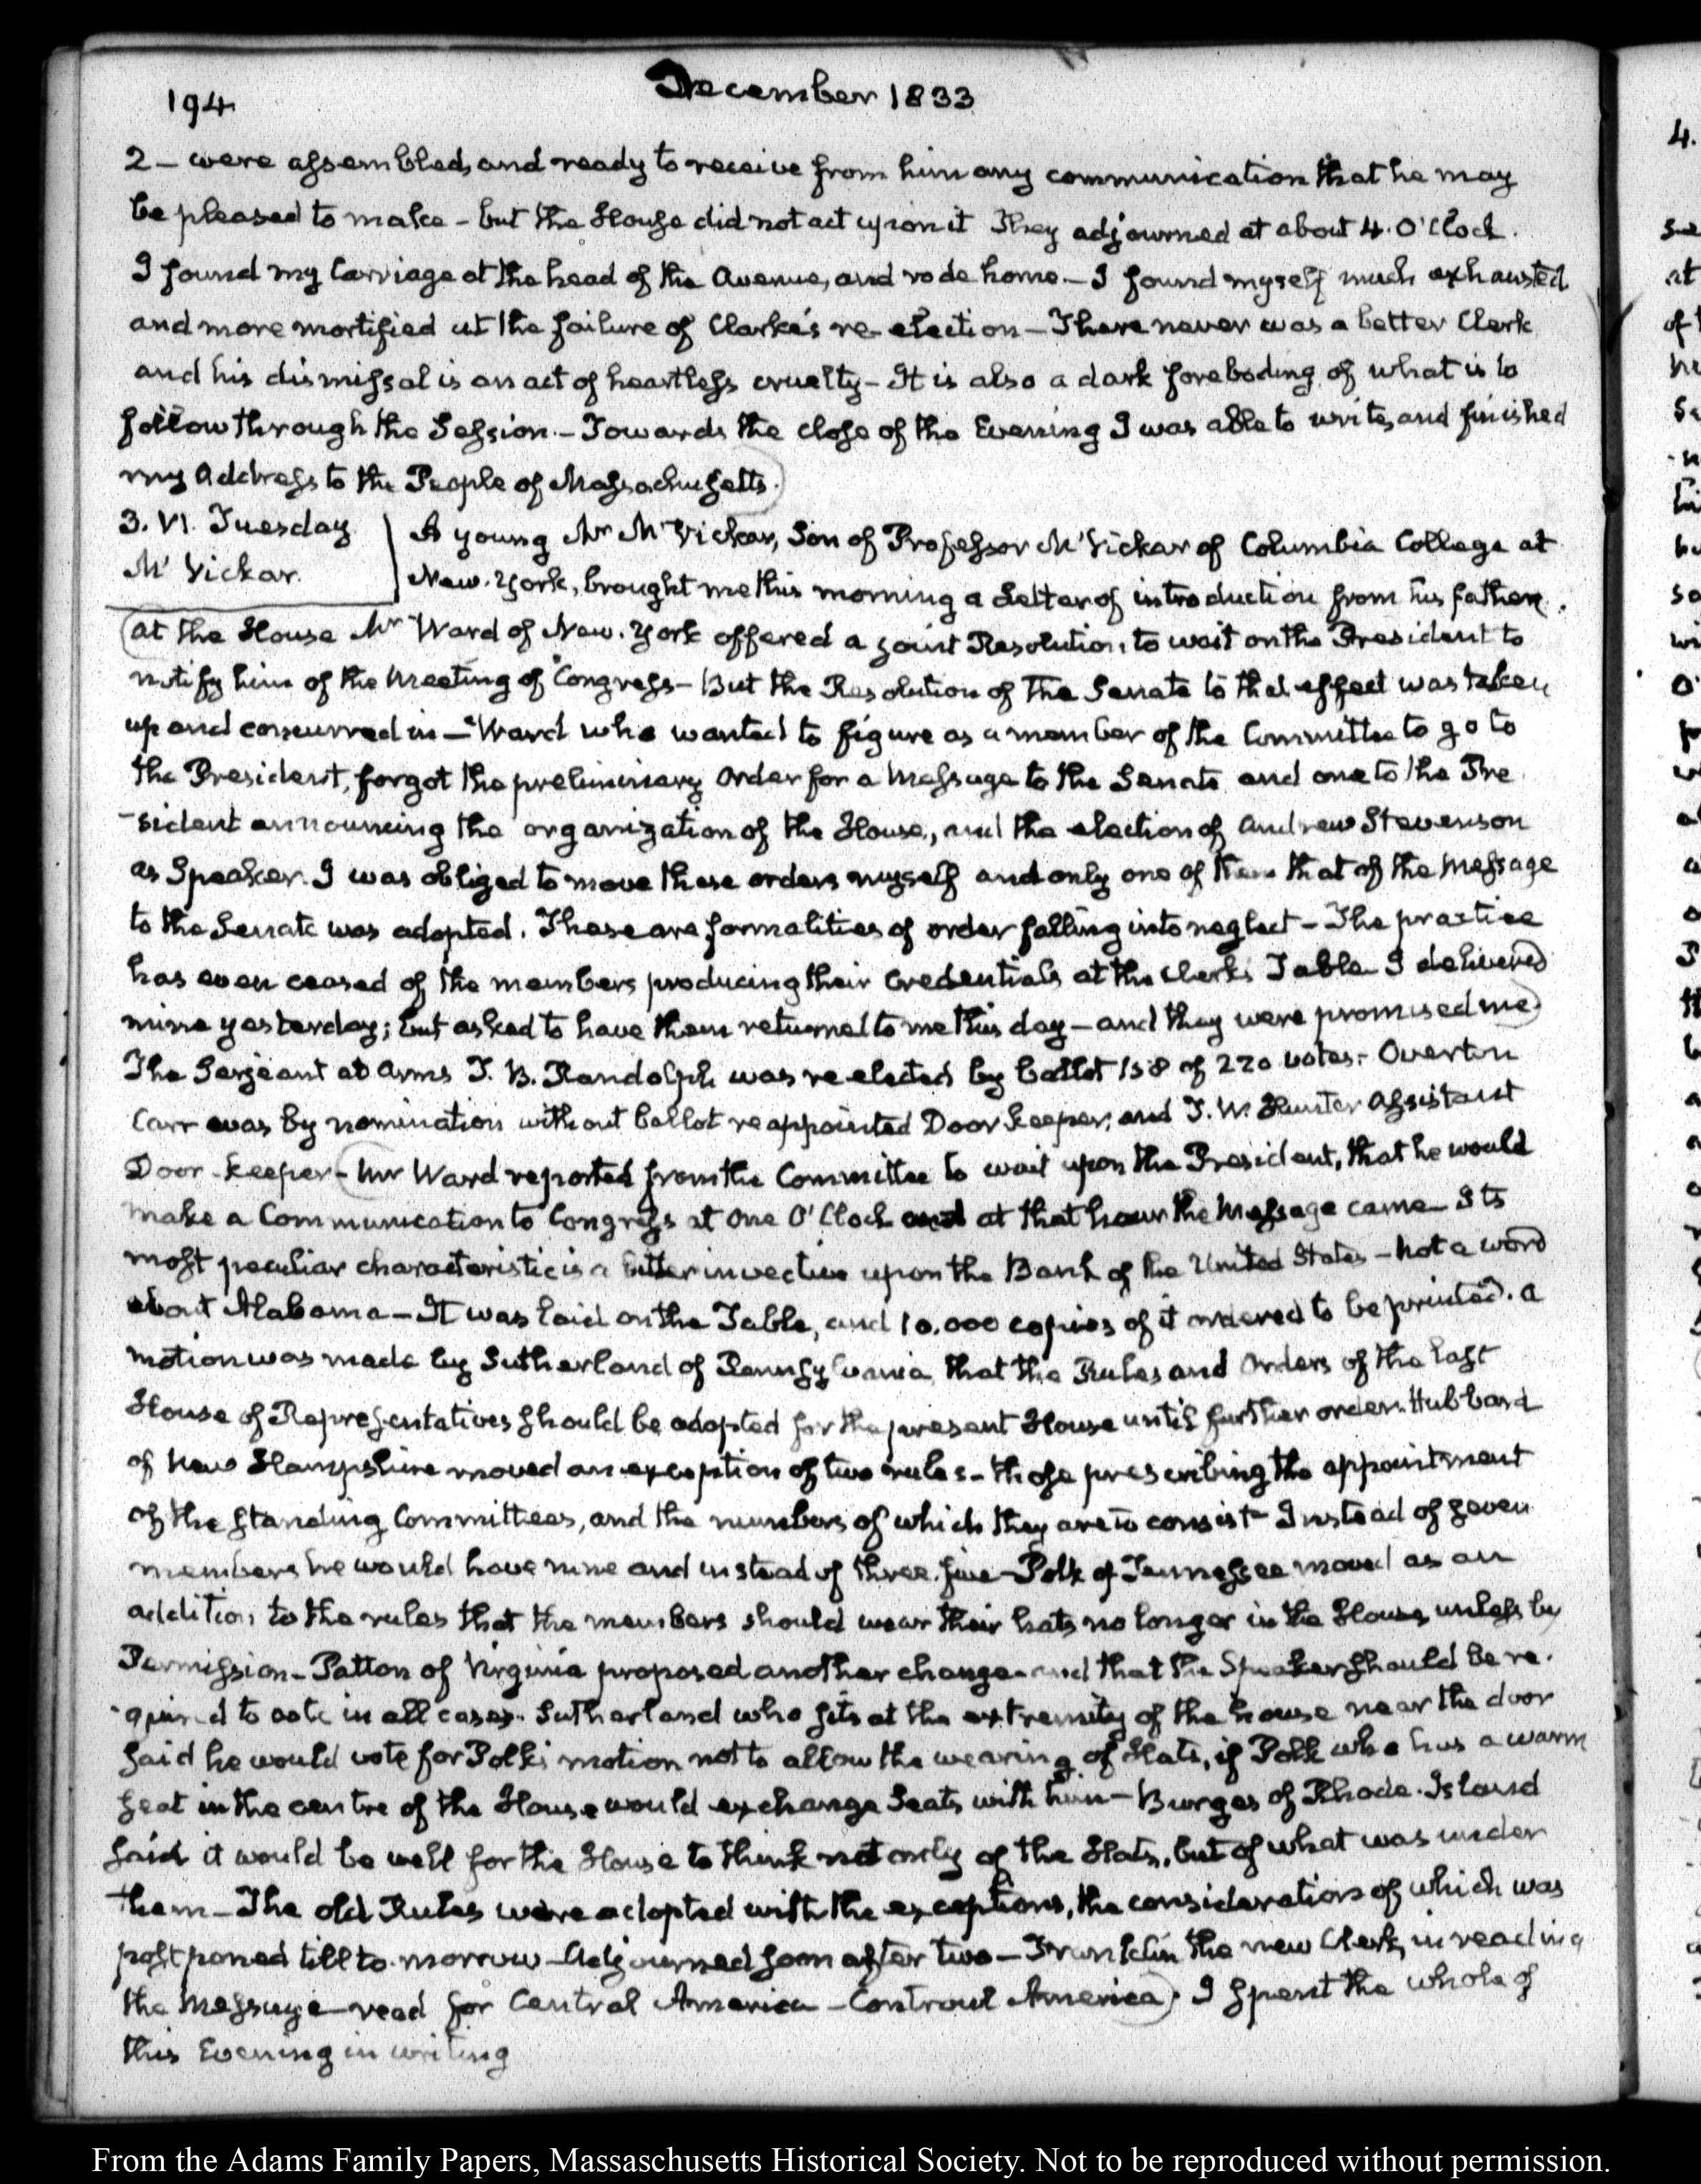 194
December 1833
2 – were assembled, and ready to receive from him any communication that he may
be pleased to make – but the House did not act upon it They adjourned at about 4. O'Clock.
I found my Carriage at the head of the Avenue, and rode home. – I found myself much exhausted
and more mortified at the failure of Clarke's re-election – There never was a better Clerk
and his dismissal is an act of heartless cruelty – It is also a dark foreboding of what is to
follow through the Session. – Towards the close of the Evening I was able to write, and finished
my Address to the People of Massachusetts.
3. VI. Tuesday
McVickar.
A young Mr McVickar, Son of Professor McVickar of Columbia College at
New-York, brought me this morning a Letter of introduction from his father.
At the House Mr Ward of New-York offered a joint Resolution, to wait on the President to
notify him of the Meeting of Congress – But the Resolution of the Senate to that effect was taken
up and concurred in – Ward who wanted to figure as a member of the Committee to go to
the President, forgot the preliminary Order for a Message to the Senate and one to the Pre
-sident announcing the organization of the House, and the election of Andrew Stevenson
as Speaker. I was obliged to move these orders myself and only one of them that of the Message
to the Senate was adopted. These are formalities of order falling into neglect – The practice
has even ceased of the members producing their Credentials at the Clerk's Table I delivered
mine yesterday; but asked to have them returned to me this day – and they were promised me
The Serjeant at Arms T. B. Randolph was re elected by ballot 158 of 220 votes. – Overton
Carr was by nomination without ballot reappointed Door keeper, and J. W. Hunter Assistant
Door-keeper – Mr Ward reported from the Committee to wait upon the President, that he would
make a Communication to Congress at One O'Clock and at that hour the Message came – Its
most peculiar characteristic is a bitter invective upon the Bank of the United States – not a word
about Alabama – It was laid on the Table, and 10.000 copies of it ordered to be printed. A
motion was made by Sutherland of Pennsylvania, that the Rules and Orders of the last
House of Representatives should be adopted for the present House until further order. Hubbard
of New Hampshire moved an exception of two rules – those prescribing the appointment
of the standing Committees, and the numbers of which they are to consist – Instead of seven
members he would have nine and instead of three, five – Polk of Tennessee moved as an
addition to the rules that the members should wear their hats no longer in the House, unless by
Permission – Patton of Virginia proposed another change – and that the Speaker should be re-
-quired to vote in all cases. Sutherland who sits at the extremity of the house near the door
said he would vote for Polk's motion not to allow the wearing of Hats, if Polk who has a warm
seat in the centre of the House would exchange Seats with him – Burges of Rhode-Island
said it would be well for the House to think not only of the Hats, but of what was under
them – The old Rules were adopted with the exceptions, the consideration of which was
postponed till to-morrow – Adjourned soon after two – Franklin the new Clerk, in reading
the Message – read for Central America – Controul America. I spent the whole of
this Evening in writing
4.
From the Adams Family Papers, Massachusetts Historical Society. Not to be reproduced without permission.